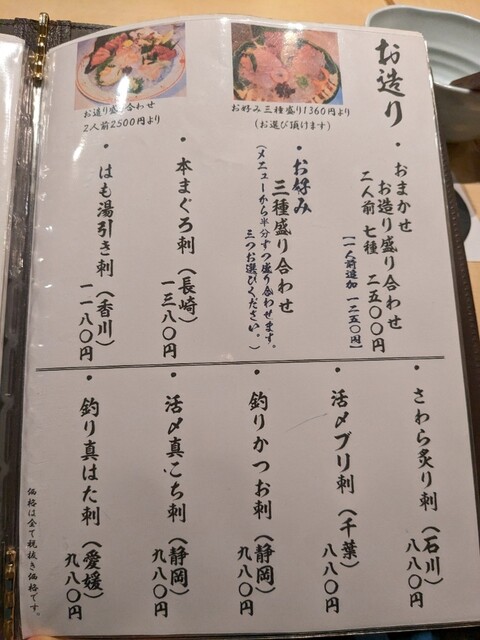 お造り
お造り盛り合わせ
2人前2500円より
お好み三種盛り1360円より
(お選び頂けます)
・おまかせ
お造り盛り合わせ
二人前 七種 二五〇〇円
【一人前追加 一二五〇円】
・お好み
三種盛り合わせ
(メニューから半分ずつ盛り合わせます。
三つお選びください。)
・本まぐろ刺(長崎)
一三八〇円
・はも湯引き刺(香川)
一一八〇円
・さわら炙り刺(石川)
八八〇円
・活〆ブリ刺(千葉)
八八〇円
・釣りかつお刺(静岡)
九八〇円
・活〆真こち刺(静岡)
九八〇円
・釣り真はた刺(愛媛)
九八〇円
価格は全て税抜き価格です。